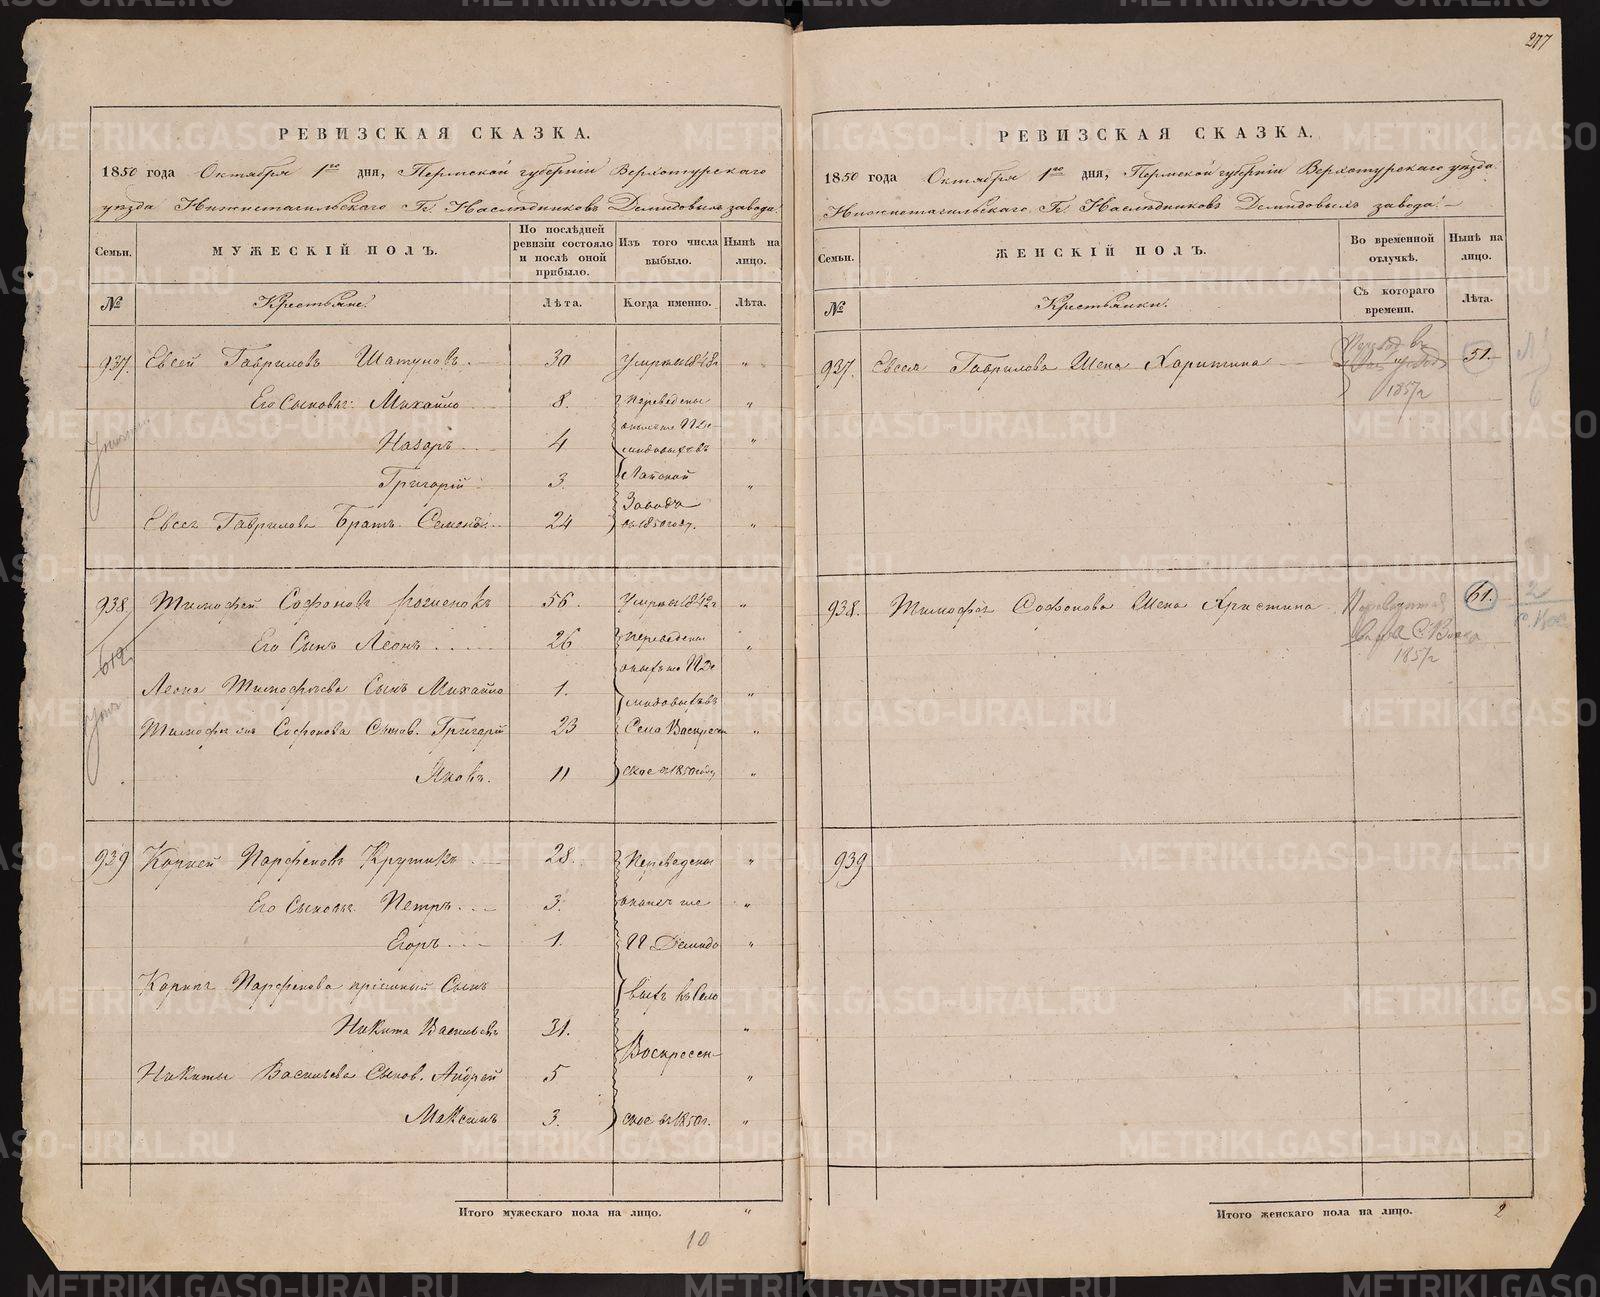 277
РЕВИЗСКАЯ СКАЗКА.
1850 года Октября 1го дня, Пермской губерніи Верхотурскаго
уѣзда Нижнетагильскаго Гг. Наслѣдниковъ Демидовыхъ завода.
Семьи.
МУЖЕСКІЙ ПОЛЪ.
По послѣдней ревизіи состояло и послѣ оной прибыло.
Изъ того числа выбыло.
Нынѣ на лицо.
№
Крестьяне.
Лѣта.
Когда именно.
Лѣта.
937. Евсей Гавриловъ Шатуновъ 30 Умеръ 1848г „
Его Сыновья: Михайло 8. Переведены „
Назаръ 4 „
Григорій 3. Лайской „
Завода
Евсея Гаврилова Братъ Семенъ 24 въ 1850 году. „
938. Тимофей Софоновъ 56. Умеръ 1842г „
Его Сынъ Леонъ 26 Переведены „
612
Леона Тимофѣева Сынъ Михайло 1. „
Тимофея Софонова Сынов. Григорій 23 Село Воскресен „
Яковъ. 11 ское въ 1850 году „
939 Корней Парфеновъ Крутикъ 28. Переведены „
Его Сыновья Петръ 3. „
Егоръ 1. Демидо „
Корнея Парфенова пріемный Сынъ выхъ въ Село
Никита Васильевъ 31. „
Воскресен
Никиты Васильева Сынов. Андрей 5 „
Максимъ 3. ское въ 1850г. „
Итого мужескаго пола на лицо. „
10
РЕВИЗСКАЯ СКАЗКА.
1850 года Октября 1го дня, Пермской губерніи Верхотурскаго уѣзда
Нижнетагильскаго Гг. Наслѣдниковъ Демидовыхъ завода.
Семьи.
ЖЕНСКІЙ ПОЛЪ.
Во временной отлучкѣ.
Нынѣ на лицо.
№
Крестьянки.
Съ котораго времени.
Лѣта.
937. Евсея Гаврилова Жена Харитина 51.
1857г
938. Тимофея Софонова Жена Христина 61. 2
1857г
939
Итого женскаго пола на лицо. 2
METRIKI.GASO-URAL.RU